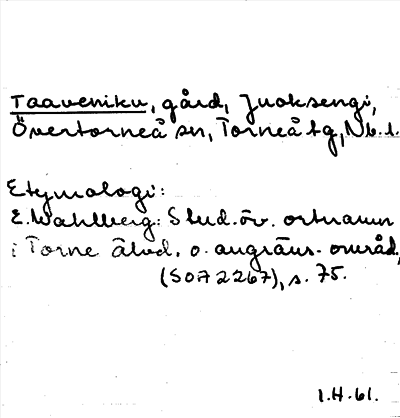 Taaveniku, gård, Juoksengi,
Övertorneå sn, Torneå tg, Nb. l.
Etymologi:
E. Wahlberg: Stud. öv. ortnamn
i Torne älvd. o. angräns. områd,
(SOA 2267), s. 75.
1.H.61.